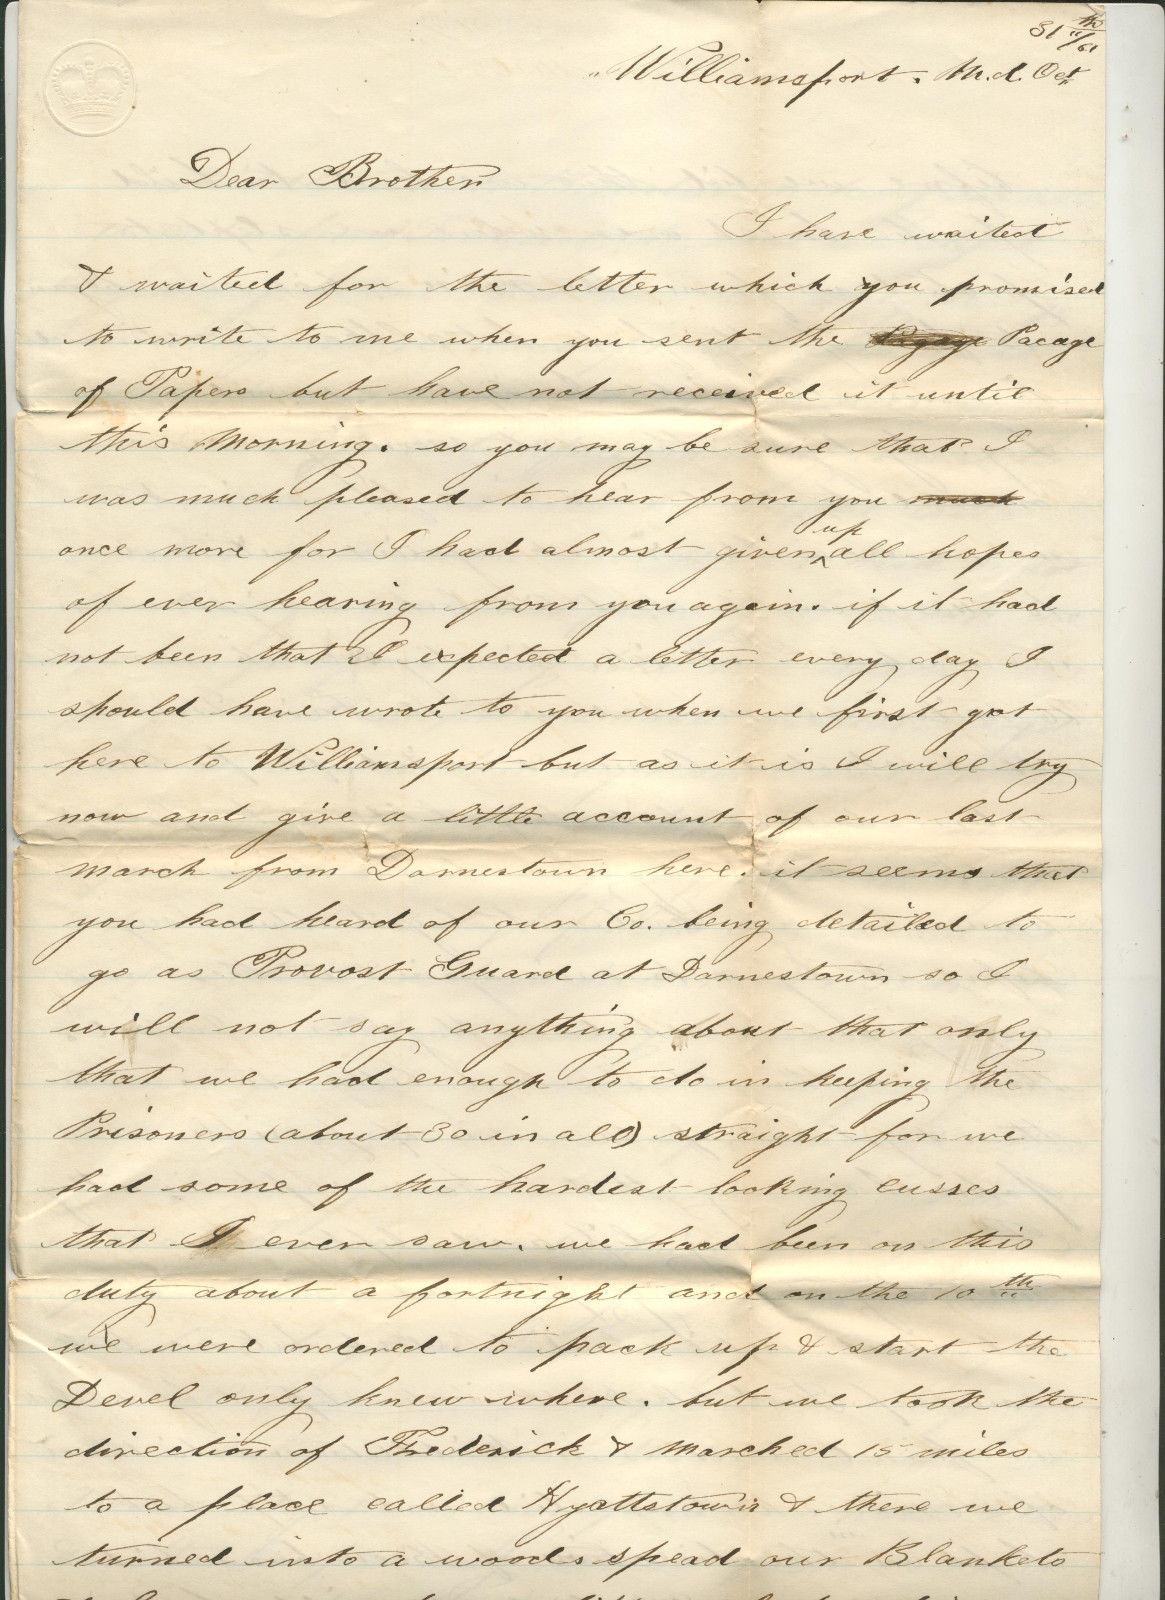 Williamsport. M.d. Oct 31th /61
Dear Brother
I have waited
& waited for the letter which you promised
to write to me when you sent the Pacage
of Papers but have not received it until
this Morning. so you may be sure that I
was much pleased to hear from you much
once more for I had almost given up all hopes
of ever hearing from you again. if it had
not been that I expected a letter every day I
should have wrote to you when we first got
here to Williamsport but as it is I will try
now and give a little account of our last
march from Darnestown here. it seems that
you had heard of our Co. being detailed to
go as Provost Guard at Darnestown so I
will not say anything about that only
that we had enough to do in keeping the
Prisoners (about 30 in all) straight for we
had some of the hardest looking cusses
that I ever saw. we had been on this
duty about a fortnight and on the 10th
we were ordered to pack up & start the
Devel only knew where. but we took the
direction of Frederick & marched 15 miles
to a place called Hyattstown & there we
turned into a woods spead our Blankets